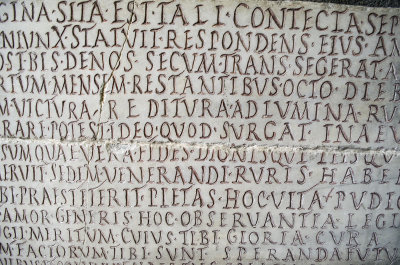 GINA·SITA EST TALI CONTECTA SEP
NIVNX STATVIT·RESPONDENS·EIVS·AM
OST·BIS·DENOS·SECVM TRANSEGERAT·A
RTVM·MENSEM·RESTANTIBVS·OCTO·DIEB
M·VICTVRA·REDITVRA·AD LVMINA·RV
RARI·POTEST·IDEO·QVOD·SVRGAT·IN AEV
VM QVAE·VERA·FIDES·DIGNISQVE
AERVIT·SEDEM·VENERANDI·RVRIS·HABE
BI·PRAESTITERIT·PIETAS·HOC·VITA·PVDIC
AMOR·GENERIS·HOC·OBSERVANTIA·LEGI
GII·MERITVM·CVIVS·TIBI·GLORIA·CVRA
M·FACTORVM·TIBI·SVNT·SPERANDA·FVTV